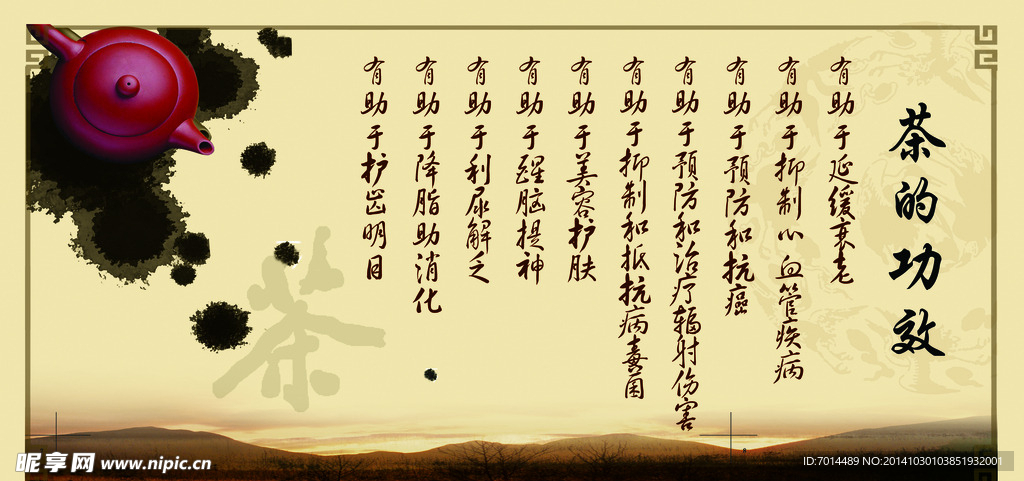 茶的功效
有助于延缓衰老
有助于抑制心血管疾病
有助于预防和抗癌
有助于预防和治疗辐射伤害
有助于抑制和抵抗病毒菌
有助于美容护肤
有助于醒脑提神
有助于利尿解乏
有助于降脂助消化
有助于护齿明目
茶
昵享网 www.nipic.cn
ID:7014489 NO:20141030103851932001